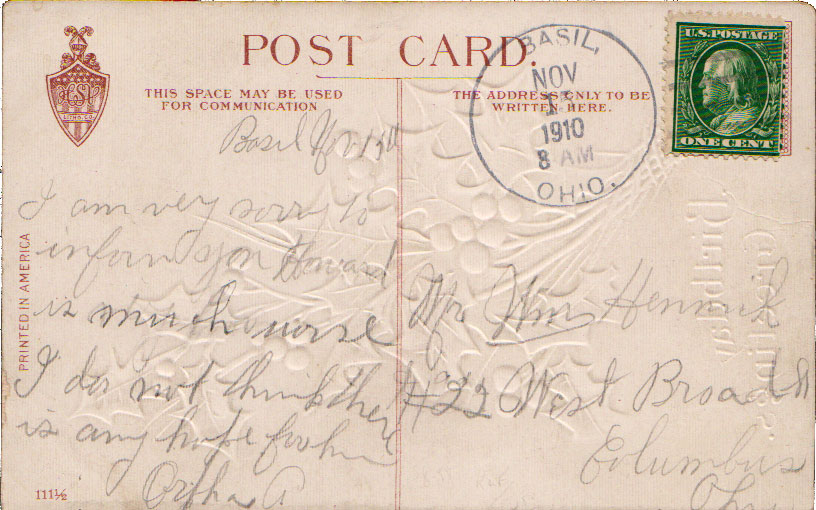 POST CARD.
THIS SPACE MAY BE USED
FOR COMMUNICATION
THE ADDRESS ONLY TO BE
WRITTEN HERE.
BASIL,
NOV
1910
8 AM
OHIO.
U.S. POSTAGE
ONE CENT
H.S.V.
LITHO. CO.
PRINTED IN AMERICA
Basil
I am very sorry to
inform you Howard
is much worse
I do not think there
is any hope for him
Orpha A
Mr Wm
#22 West. Broad St
Columbus
Ohio
111½